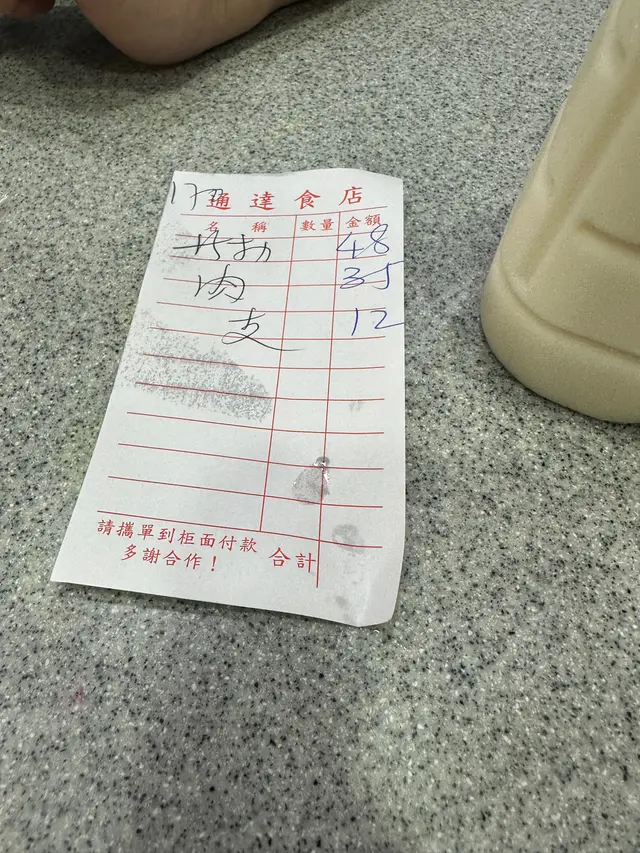 通達食店
名稱 數量 金額
48
肉 35
支 12
請攜單到柜面付款
多謝合作！ 合計